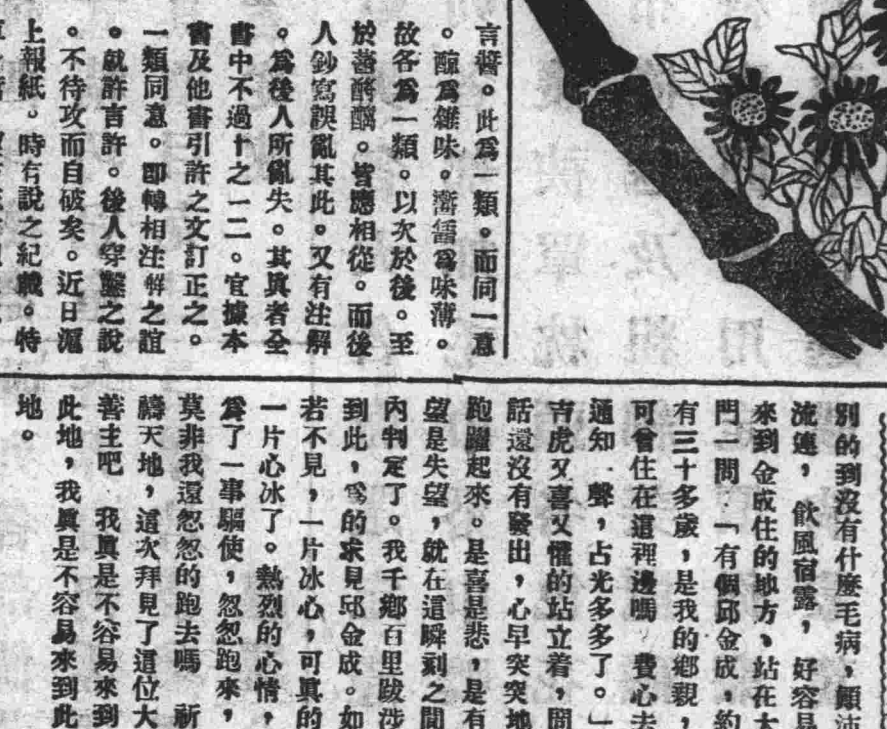 言醬。此爲一類。而同一意
。醎爲雜味。爲味薄。
故各爲一類。以次於後。至
於醬酹醊。皆應相從。而後
人鈔寫誤亂其此。又有注解
。爲後人所亂失。其眞者全
書中不過十之一二。宜據本
書及他書引許之文訂正之。
一類同意。卽轉相注解之誼
。就許言許。後人穿鑿之說
。不待攻而自破矣。近日滬
上報紙。時有說之紀載。特
別的到沒有什麼毛病，顚沛
流連，飲風宿露，好容易
來到金成住的地方，站在大
門一問．「有個邱金成，約
有三十多歲，是我的鄉親，
可曾住在這裡邊嗎 費心去
通知一聲，占光多多了。」
吉虎又喜又懼的站立着，問
話還沒有發出，心早突突地
跑躍起來。是喜是悲，是有
望是失望，就在這瞬刻之間
內判定了。我千鄉百里跋涉
到此，爲的求見邱金成。如
若不見，一片冰心，可眞的
一片心冰了。熱烈的心情，
爲了一事驅使，怱怱跑來，
莫非我還怱怱的跑去嗎 祈
禱天地，這次拜見了這位大
善主吧 我眞是不容易來到
此地，我眞是不容易來到此
地。